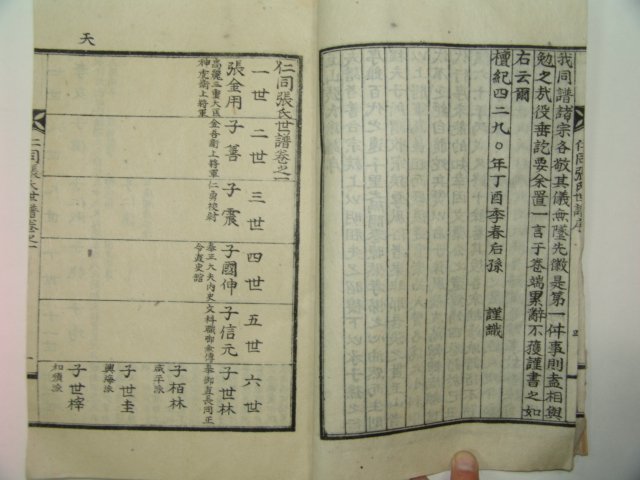 我同譜諸宗各敬其儀無墜先徽是第一件事則盍相與
勉之哉役垂訖要余置一言于卷端累辭不獲謹書之如
右云爾
檀紀四二九〇年丁酉季春后孫 謹識
仁同張氏世譜序
天
仁同張氏世譜卷之一
一世 二世 三世 四世 五世 六世
張金用 子善 子震 子國伸 子信元 子世林
高麗三重大匡
神虎衛上將軍
金吾衛上將軍
仁勇校尉
奉正大夫內史
令直史館
子栢林
子世圭
興海派
子世梓
和順派
仁同張氏世譜卷之一
一